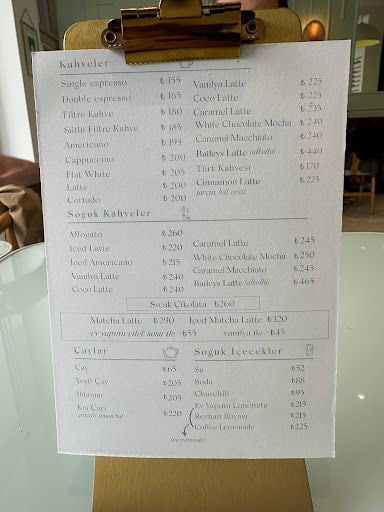 Kahveler
Single espresso ₺ 155
Double espresso ₺ 165
Filtre Kahve ₺ 180
Sütlü Filtre Kahve ₺ 185
Americano ₺ 195
Cappuccino ₺ 200
Flat White ₺ 205
Latte ₺ 200
Cortado ₺ 200
Vanilya Latte ₺ 225
Coco Latte ₺ 225
Caramel Latte ₺ 235
White Chocolate Mocha ₺ 240
Caramel Macchiato ₺ 240
Baileys Latte (alkollü) ₺ 440
Türk Kahvesi ₺170
Cinnamon Latte ₺ 225
tarçın, bal, ceviz
Soğuk Kahveler
Affogato ₺260
Iced Latte ₺220
Iced Americano ₺ 215
Vanilya Latte ₺240
Coco Latte ₺240
Caramel Latte ₺245
White Chocolate Mocha ₺250
Caramel Macchiato ₺245
Baileys Latte (alkollü) ₺465
Sıcak Çikolata ₺260
Matcha Latte ₺290 Iced Matcha Latte ₺320
ev yapımı çilek sosu ile +₺55 vanilya ile +₺45
Çaylar
Çay ₺65
Yeşil Çay ₺205
Ihlamur ₺205
Kış Çayı ₺220
zencefil limon bal
Soğuk İçecekler
Su ₺52
Soda ₺88
Churchill ₺95
Ev Yapımı Limonata ₺215
Reyhan Rüyası ₺215
Coffee Lemonade ₺225
(önerimizdir)